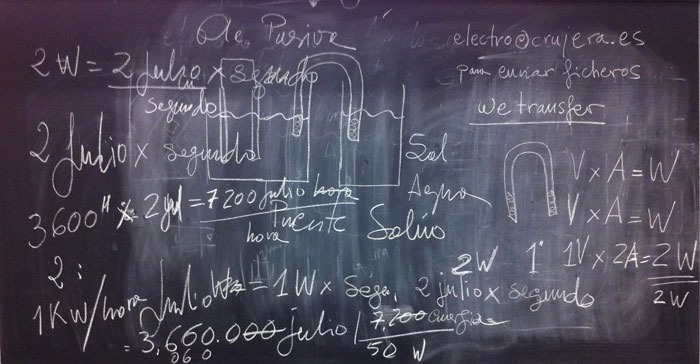 De Pasiva
electro@crujera.es
para enviar ficheros
we transfer
2 W = 2 julio x segundo
segundo
2 Julio x segundo
Sal
Agua
V x A = W
V x A = W
3600 x 2 = 7200 julio hora
hora
Puente Salino
2W 1" 1V x 2A = 2W
2W
2:
1 KW/hora Julio = 1W x Segu, 2 julio x segundo
= 3,660.000 julio / 7,200 energia
060
50 W